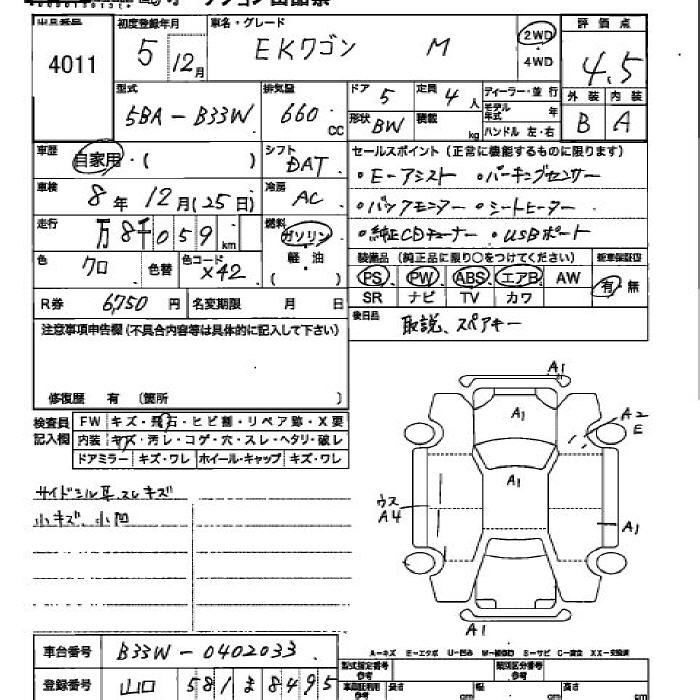 出品番号 初度登録年月 車名・グレード 評価点
4011 5 12月 EKワゴン M 2WD 4WD 4.5
外装 内装
B A
型式 排気量 ドア 定員 ディーラー・並行
5BA-B33W 660 CC 5 4人 モデル年式 年
形状 BW 積載 kg ハンドル 左・右
車歴 自家用・( ) シフト DAT
セールスポイント(正常に機能するものに限ります)
・E-アシスト ・パーキングセンサー
車検 8年12月(25日) 冷房 AC
・バックモニター ・シートヒーター
走行 万8千059km 燃料 ガソリン 軽・油
・純正CDチューナー ・USBポート
色 クロ 色替 色コード X42
装備品(純正品に限り○をつけてください) 新車保証書
PS PW ABS エアB AW 有・無
SR ナビ TV カワ
R券 6,750円 名変期限 月 日
後日品 取説、スペアキー
注意事項申告欄(不具合内容等は具体的に記入して下さい)
修復歴 有 (箇所 )
検査員記入欄
FW キズ・飛石・ヒビ割・リペア跡・X要
内装 キズ・汚レ・コゲ・穴・スレ・ヘタリ・破レ
ドアミラー キズ・ワレ ホイール・キャップ キズ・ワレ
サイドシル耳スレキズ
小キズ、小凹
A1
A1
A2
E
A1
ウス
A4
A1
A1
A-キズ E-エクボ U-凹み W-補修跡 S-サビ C-腐食 XX-交換済
車台番号 B33W-0402033
型式指定番号 参考 類別区分番号 参考
登録番号 山口 581ま8495
長さ cm 幅 cm 高さ cm